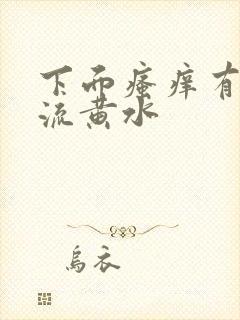 下面瘙痒有
流黄水
乌衣